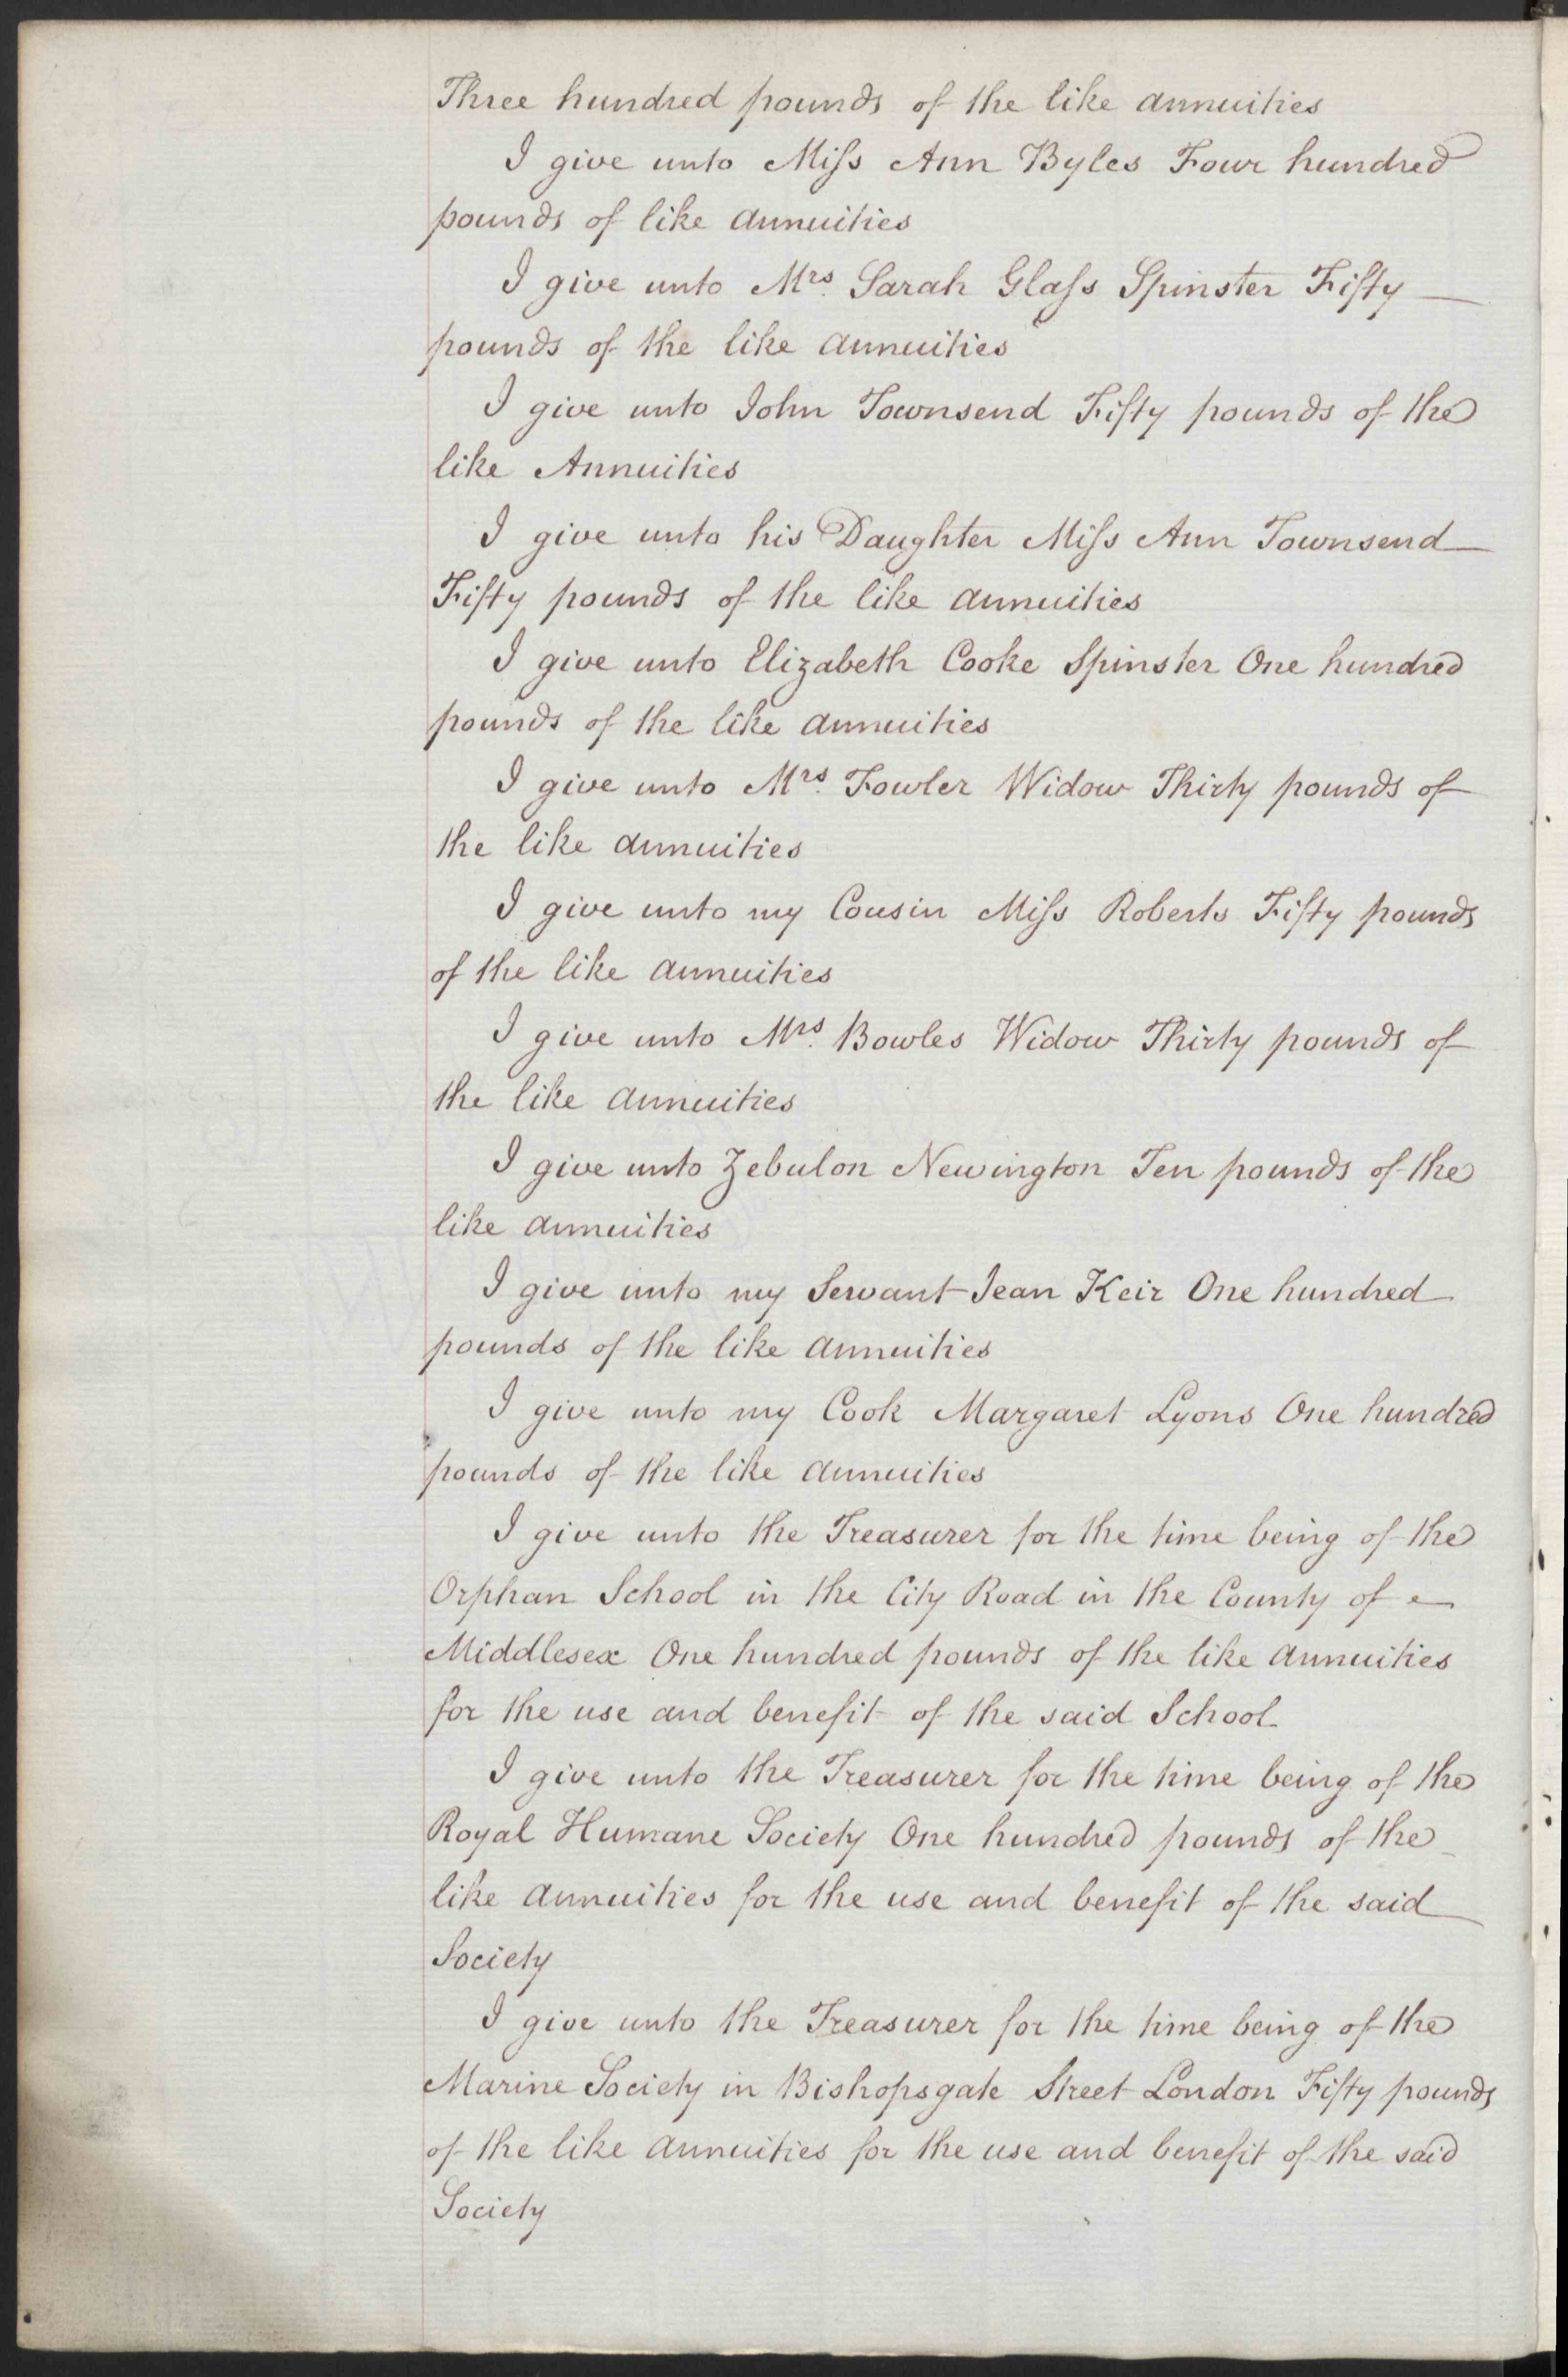 Three hundred pounds of the like annuities
I give unto Miſs Ann Byles Four hundred
pounds of like annuities
I give unto Mrs. Sarah Glaſs Spinster Fifty
pounds of the like annuities
I give unto John Townsend Fifty pounds of the
like Annuities
I give unto his Daughter Miſs Ann Townsend
Fifty pounds of the like annuities
I give unto Elizabeth Cooke Spinster One hundred
pounds of the like annuities
I give unto Mrs. Fowler Widow Thirty pounds of
the like annuities
I give unto my Cousin Miſs Roberts Fifty pounds
of the like annuities
I give unto Mrs. Bowles Widow Thirty pounds of
the like annuities
I give unto Zebulon Newington Ten pounds of the
like annuities
I give unto my Servant Jean Keir One hundred
pounds of the like annuities
I give unto my Cook Margaret Lyons One hundred
pounds of the like annuities
I give unto the Treasurer for the time being of the
Orphan School in the City Road in the County of
Middlesex One hundred pounds of the like annuities
for the use and benefit of the said School
I give unto the Treasurer for the time being of the
Royal Humane Society One hundred pounds of the
like annuities for the use and benefit of the said
Society
I give unto the Treasurer for the time being of the
Marine Society in Bishopsgate Street London Fifty pounds
of the like annuities for the use and benefit of the said
Society